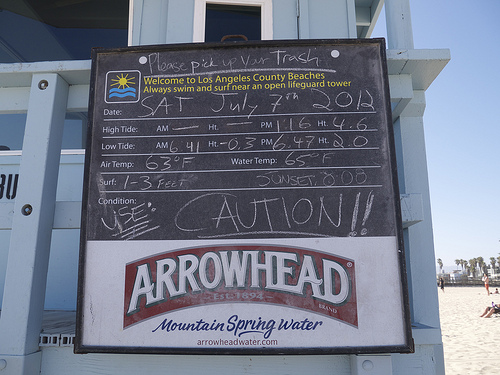 Please pick up Your Trash
Welcome to Los Angeles County Beaches
Always swim and surf near an open lifeguard tower
Date: SAT July 7th 2012
High Tide: AM — Ht. — PM 1:16 Ht. 4.6
Low Tide: AM 6:41 Ht. -0.3 PM 6:47 Ht. 2.0
Air Temp: 63°F Water Temp: 65°F
Surf: 1-3 FEET SUNSET, 8:08
Condition:
USE: CAUTION!!
ARROWHEAD®
EST. 1894
BRAND
Mountain Spring Water
arrowheadwater.com